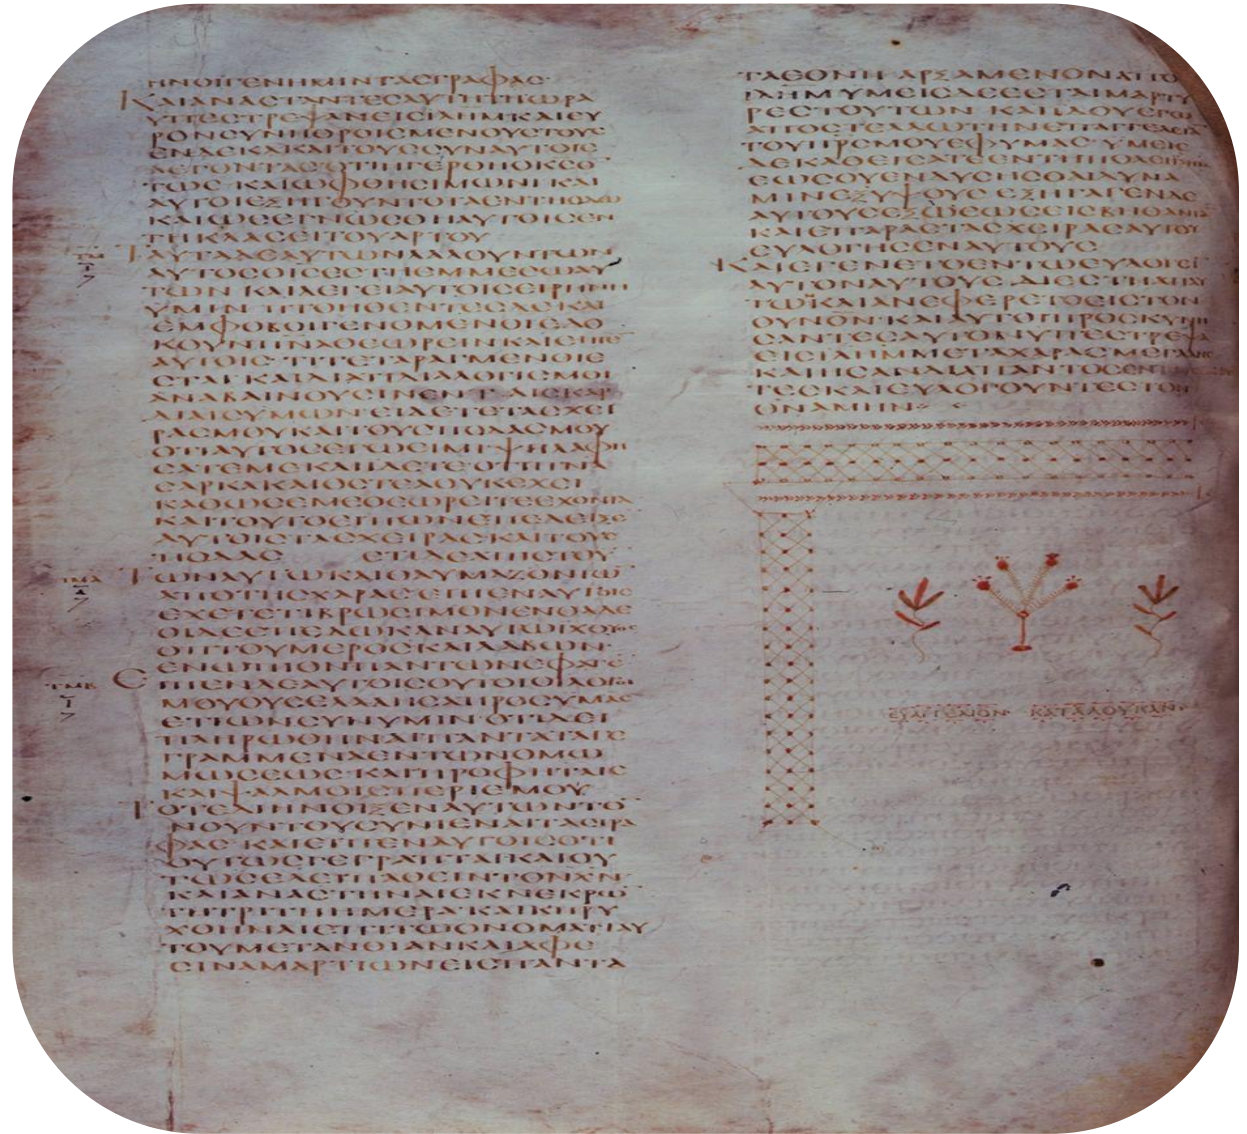 ΗΝΟΙΓΕΝΗΜΙΝΤΑϹΓΡΑΦΑϹ·
ΚΑΙΑΝΑϹΤΑΝΤΕϹΑΥΤΗΤΗΩΡΑ
ΥΠΕϹΤΡΕΨΑΝΕΙϹΙΛΗΜΚΑΙΕΥ
ΡΟΝϹΥΝΗΘΡΟΙϹΜΕΝΟΥϹΤΟΥϹ
ΕΝΔΕΚΑΚΑΙΤΟΥϹϹΥΝΑΥΤΟΙϹ
ΛΕΓΟΝΤΑϹΟΤΙΗΓΕΡΘΗΟΚϹΟ
ΤΩϹ· ΚΑΙΩΦΘΗϹΙΜΩΝΙΚΑΙ
ΑΥΤΟΙΕΞΗΓΟΥΝΤΟΤΑΕΝΤΗΟΔΩ
ΚΑΙΩϹΕΓΝΩϹΘΗΑΥΤΟΙϹΕΝ
ΤΗΚΛΑϹΕΙΤΟΥΑΡΤΟΥ
ΤΜ ΤΑΥΤΑΔΕΑΥΤΩΝΛΑΛΟΥΝΤΩΝ
ΑΥΤΟϹΟΙϹΕϹΤΗΕΜΜΕϹΩΑΥ
ΤΩΝ ΚΑΙΛΕΓΕΙΑΥΤΟΙϹΕΙΡΗΝΗ
ΥΜΙΝ· ΠΤΟΗΘΕΝΤΕϹΔΕΚΑΙ
ΕΜΦΟΒΟΙΓΕΝΟΜΕΝΟΙΕΔΟ
ΚΟΥΝΠΝΑΘΕΩΡΕΙΝΚΑΙΕΙΠΕ
ΑΥΤΟΙϹ· ΤΙΤΕΤΑΡΑΓΜΕΝΟΙΕ
ϹΤΑΙ ΚΑΙΔΙΑΤΙΔΙΑΛΟΓΙϹΜΟΙ
ΑΝΑΒΑΙΝΟΥϹΙΝΕΝΤΑΙϹΚΑΡ
ΔΙΑΙϹΥΜΩΝ· ΕΙΔΕΤΕΤΑϹΧΕΙ
ΡΑϹΜΟΥΚΑΙΤΟΥϹΠΟΔΑϹΜΟΥ
ΟΤΙΑΥΤΟϹΕΓΩΕΙΜΙ· ΨΗΛΑΦΗ
ϹΑΤΕΜΕΚΑΙΙΔΕΤΕ· ΟΤΙΠΝΑ
ϹΑΡΚΑΚΑΙΟϹΤΕΑΟΥΚΕΧΕΙ
ΚΑΘΩϹΕΜΕΘΕΩΡΕΙΤΕΕΧΟΝΤΑ
ΚΑΙΤΟΥΤΟΕΙΠΩΝΕΠΕΔΕΙΞΕ
ΑΥΤΟΙϹΤΑϹΧΕΙΡΑϹΚΑΙΤΟΥϹ
ΠΟΔΑϹ ΕΤΙΔΕΑΠΙϹΤΟΥ
ΤΜΑ ΤΩΝΑΥΤΩΚΑΙΘΑΥΜΑΖΟΝΤΩ
ΑΠΟΤΗϹΧΑΡΑϹ· ΕΙΠΕΝΑΥΤΟΙϹ
ΕΧΕΤΕΤΙΒΡΩϹΙΜΟΝΕΝΘΑΔΕ
ΟΙΔΕΕΠΕΔΩΚΑΝΑΥΤΩΙΧΘΥΟϹ
ΟΠΤΟΥΜΕΡΟϹΚΑΙΛΑΒΩΝ
ΕΝΩΠΙΟΝΠΑΝΤΩΝΕΦΑΓΕ
ΤΜΒ ΕΙΠΕΝΔΕΑΥΤΟΙϹΟΥΤΟΙΟΙΛΟΓΟΙ
ΜΟΥΟΥϹΕΛΑΛΗϹΑΠΡΟϹΥΜΑϹ
ΕΤΙΩΝϹΥΝΥΜΙΝ· ΟΤΙΔΕΙ
ΠΛΗΡΩΘΗΝΑΙΠΑΝΤΑΤΑΓΕ
ΓΡΑΜΜΕΝΑΕΝΤΩΝΟΜΩ
ΜΩϹΕΩϹ·ΚΑΙΠΡΟΦΗΤΑΙϹ
ΚΑΙΨΑΛΜΟΙϹΠΕΡΙΕΜΟΥ
ΤΟΤΕΔΙΗΝΟΙΞΕΝΑΥΤΩΝΤΟ
ΝΟΥΝΤΟΥϹΥΝΙΕΝΑΙΤΑϹΓΡΑ
ΦΑϹ· ΚΑΙΕΙΠΕΝΑΥΤΟΙϹΟΤΙ
ΟΥΤΩϹΓΕΓΡΑΠΤΑΙΚΑΙΟΥ
ΤΩϹΕΔΕΙΠΑΘΕΙΝΤΟΝΧΝ
ΚΑΙΑΝΑϹΤΗΝΑΙΕΚΝΕΚΡΩ
ΤΗΤΡΙΤΗΗΜΕΡΑ·ΚΑΙΚΗΡΥ
ΧΘΗΝΑΙΕΠΙΤΩΟΝΟΜΑΤΙΑΥ
ΤΟΥΜΕΤΑΝΟΙΑΝΚΑΙΑΦΕ
ϹΙΝΑΜΑΡΤΙΩΝΕΙϹΠΑΝΤΑ
ΤΑΕΘΝΗ· ΑΡΞΑΜΕΝΟΝΑΠΟ
ΙΛΗΜ·ΥΜΕΙϹΔΕΕϹΤΑΙΜΑΡΤΥ
ΡΕϹΤΟΥΤΩΝ ΚΑΙΙΔΟΥΕΓΩ
ΑΠΟϹΤΕΛΛΩΤΗΝΕΠΑΓΓΕΛΕΙΑ
ΤΟΥΠΡϹΜΟΥΕΦΥΜΑϹ·ΥΜΕΙϹ
ΔΕΚΑΘΕΙϹΑΤΕΕΝΤΗΠΟΛΕΙ
ΕΩϹΟΥΕΝΔΥϹΗϹΘΑΙΔΥΝΑ
ΜΙΝΕΞΥΨΟΥϹ· ΕΞΗΓΑΓΕΝΔΕ
ΑΥΤΟΥϹΕΞΩΕΩϹΕΙϹΒΗΘΑΝΙΑ
ΚΑΙΕΠΑΡΑϹΤΑϹΧΕΙΡΑϹΑΥΤΟΥ
ΕΥΛΟΓΗϹΕΝΑΥΤΟΥϹ
ΚΑΙΕΓΕΝΕΤΟΕΝΤΩΕΥΛΟΓΕΙ
ΑΥΤΟΝΑΥΤΟΥϹ·ΔΙΕϹΤΗΑΠΑΥ
ΤΩ·ΚΑΙΑΝΕΦΕΡΕΤΟΕΙϹΤΟΝ
ΟΥΝΟΝ·ΚΑΙΑΥΤΟΙΠΡΟϹΚΥΝΗ
ϹΑΝΤΕϹΑΥΤΟΝΥΠΕϹΤΡΕΨΑ
ΕΙϹΙΛΗΜΜΕΤΑΧΑΡΑϹΜΕΓΑΛΗϹ
ΚΑΙΗϹΑΝΔΙΑΠΑΝΤΟϹΕΝ
ΤΕϹΚΑΙΕΥΛΟΓΟΥΝΤΕϹΤΟΝ
ΘΝΑΜΗΝ·
ΕΥΑΓΓΕΛΙΟΝ ΚΑΤΑΛΟΥΚΑΝ